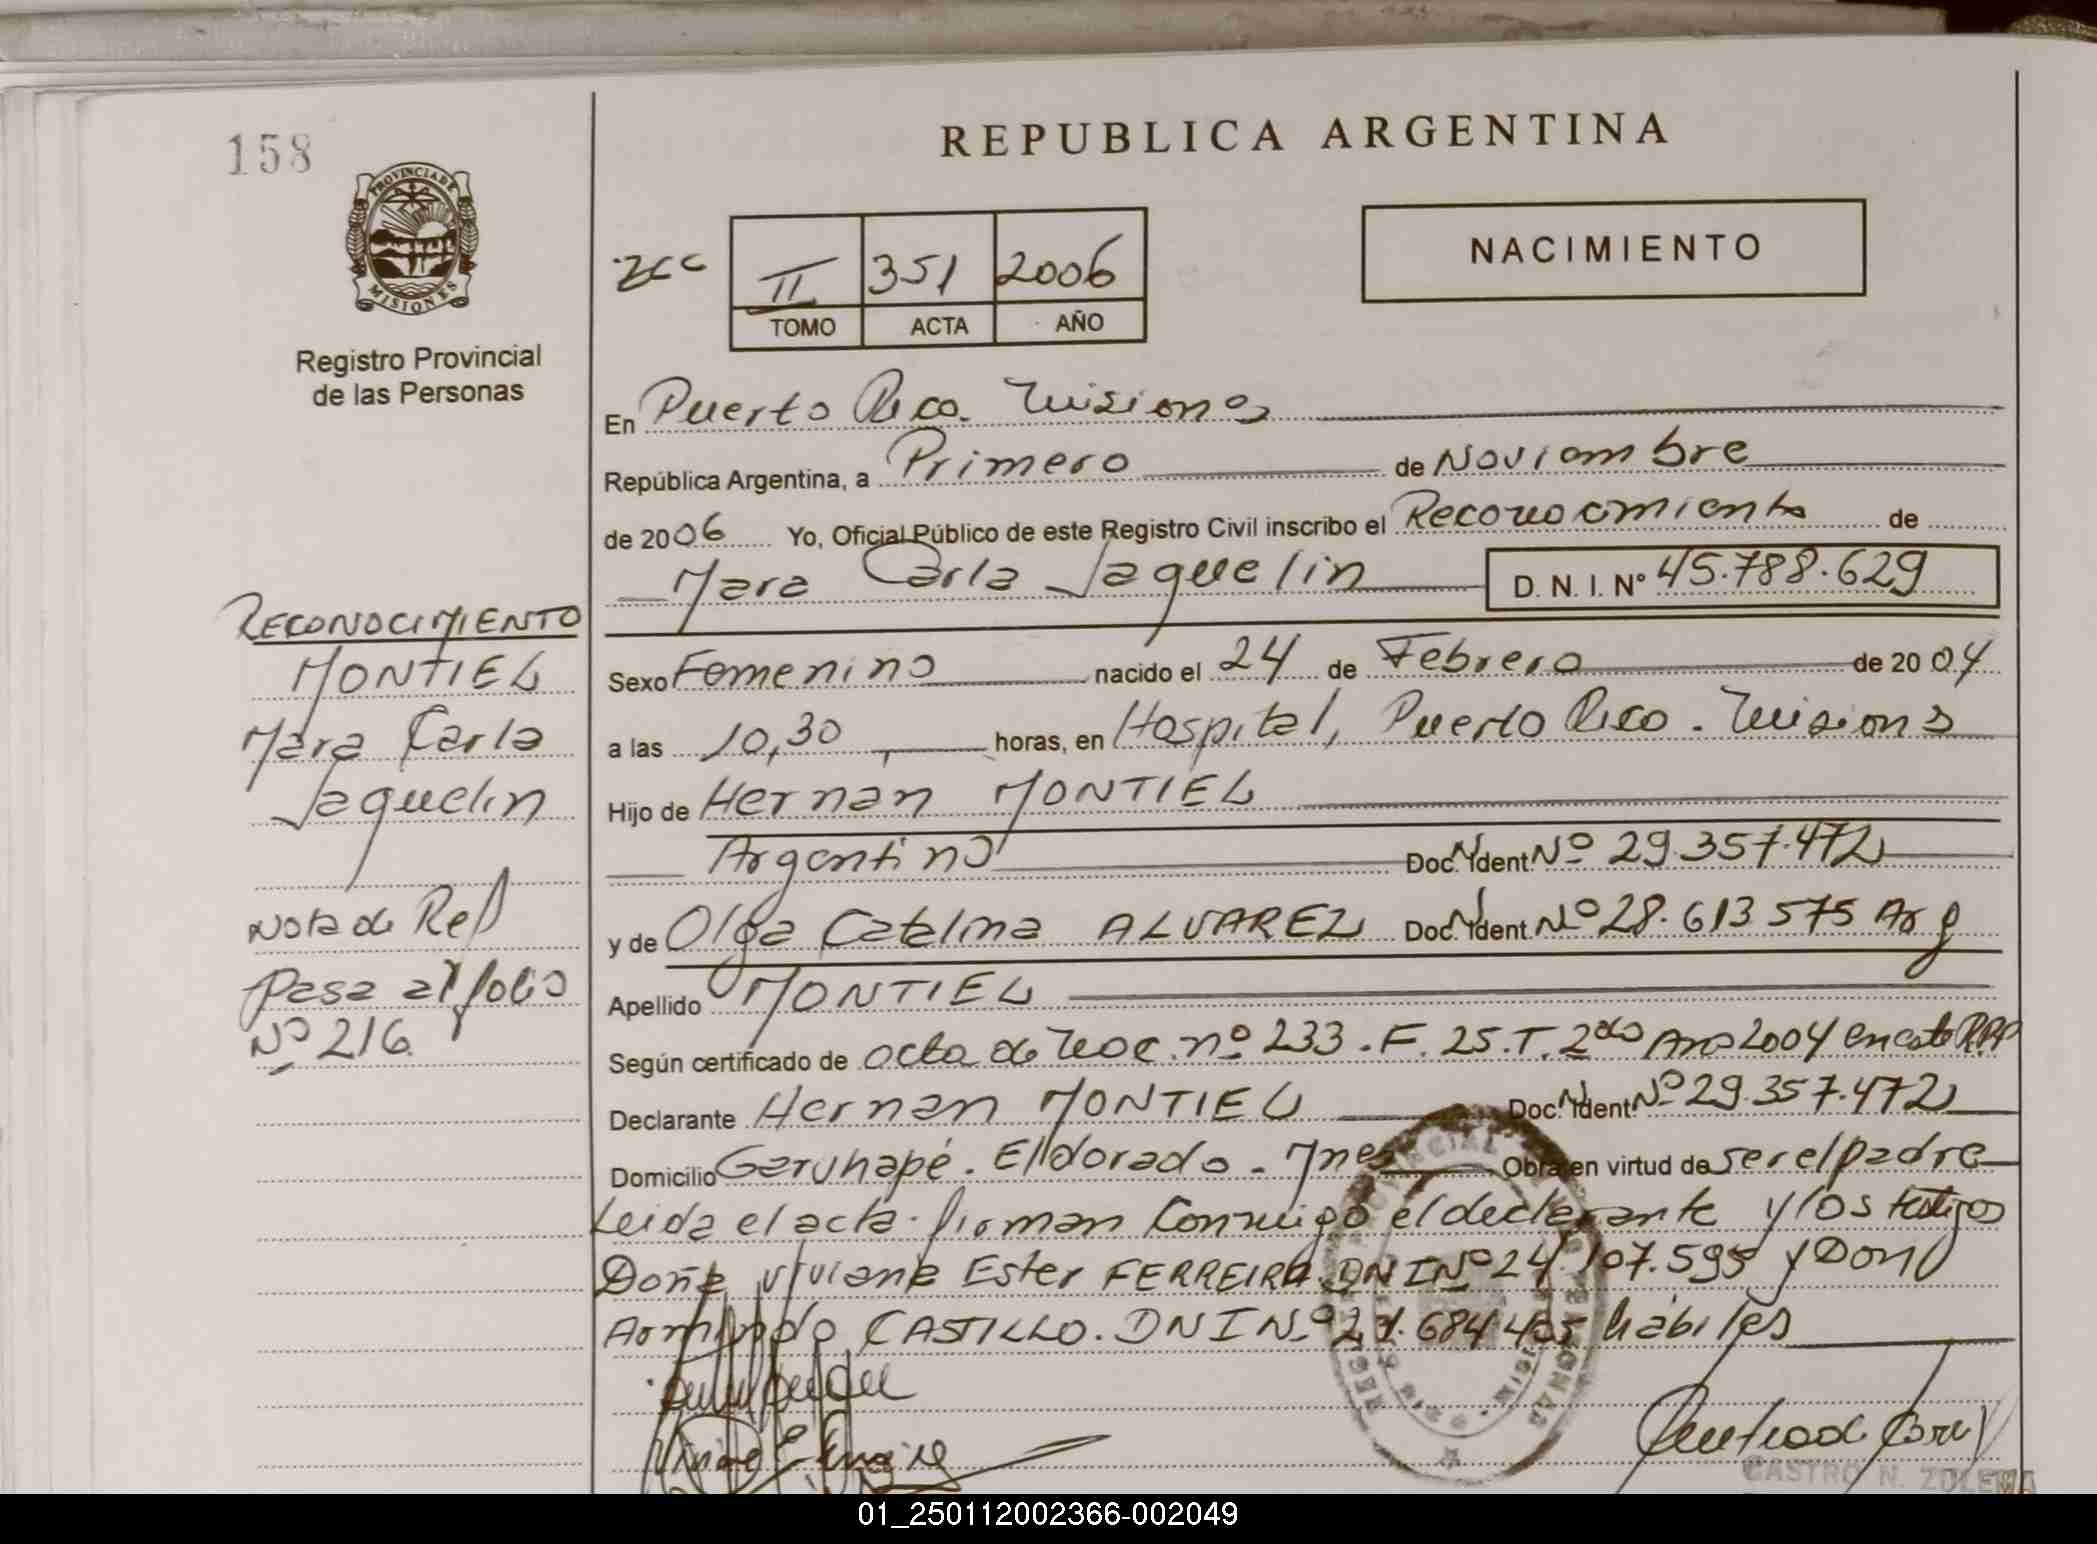 158
PROVINCIA DE
MISIONES
Registro Provincial
de las Personas
REPUBLICA ARGENTINA
II 351 2006
TOMO ACTA AÑO
NACIMIENTO
En Puerto Rico. Misiones
República Argentina, a Primero de Noviembre
de 2006 Yo, Oficial Público de este Registro Civil inscribo el Reconocimiento de
Mara Carla Jaquelin D. N. I. Nº 45.788.629
Sexo Femenino nacido el 24 de Febrero de 2004
a las 10,30 horas, en Hospital, Puerto Rico. Misiones
Hijo de Hernan MONTIEL
Argentino Doc. Ident. Nº 29.357.472
y de Olga Catalina ALVAREZ Doc. Ident. Nº 28.613575 Arg
Apellido MONTIEL
Según certificado de acta de Nac. nº 233. F. 25. T. 2do Año 2004 en este RPP
Declarante Hernan MONTIEL Doc. Ident. Nº 29.357.472
Domicilio Garuhapé. Eldorado. Mnes Obra en virtud de ser el padre
Leida el acta. firman conmigo el declarante y los testigos
Doña Viviana Ester FERREIRA DNI Nº 24.107.595 y Don
Armindo CASTILLO. DNI Nº 21.684.405 hábiles
RECONOCIMIENTO
MONTIEL
Mara Carla
Jaquelin
Nota de Ref
Pasa al folio
Nº 216
CASTRO N. ZULEMA
01_250112002366-002049